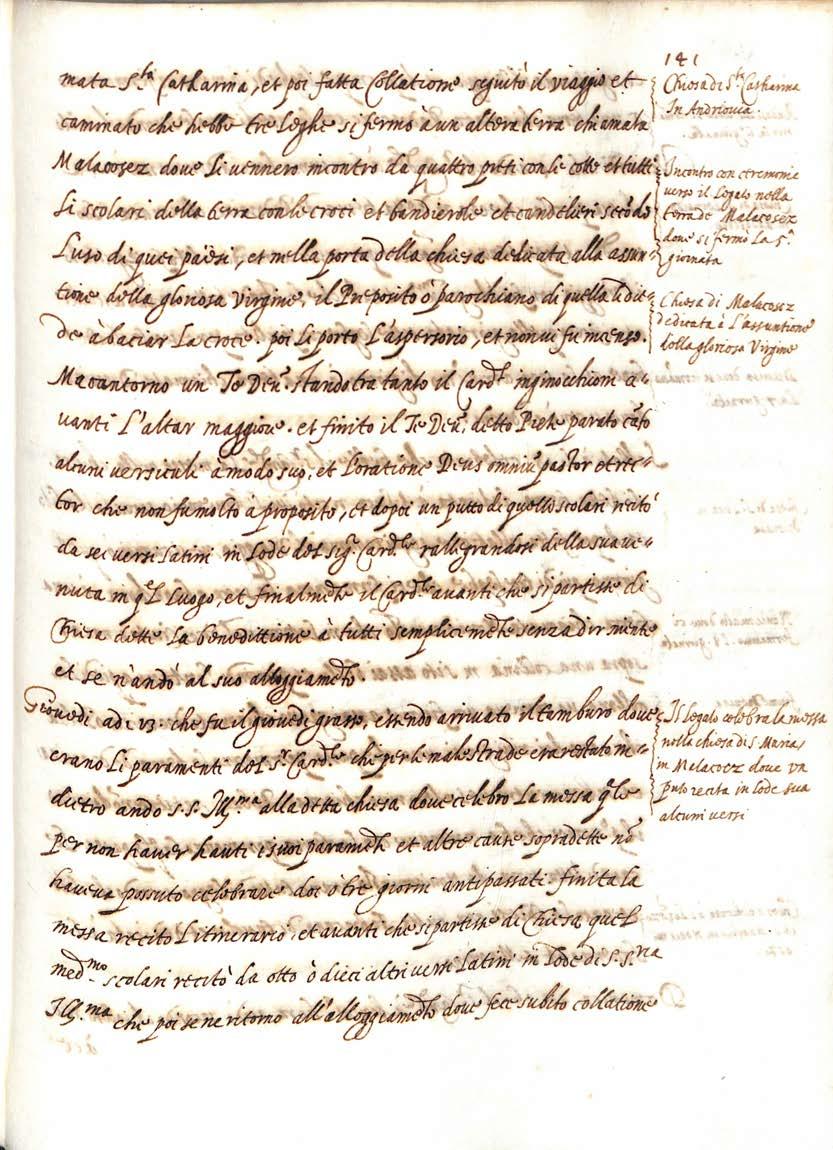 181
mata S.ta Catharina, et poi fatta Collatione seguitò il viaggio et
caminato che hebbe tre Leghe si fermò à un altera terra chiamata
Malacosez dove Li vennero incontrò da quattro preti con le cotte et tutti
Li scolari della terra con le croci et bandierole et candelieri secōdo
L'uso di quei paesi, et nella porta della chiesa dedicata alla assun-
tione della gloriosa Virgine, il Preposito ò parochiano di quella li die-
de à baciar La croce. poi Li porto L'aspersorio, et non vi fu incenso.
Ma cantorno un Te Deū. stando tra tanto il Card.l inginocchioni a-
vanti L'altar maggiore. et finito il Te Deū, detto Prete parato cātò
alcuni versiculi à modo suo, et l'oratione Deus omniū pastor et rec-
tor che non fu molto à proposito, et dopoi un putto di quelli scolari recitò
da sei versi Latini in Lode del sig.r Card.le rallegrandosi della sua ve-
nuta in q.l Luogo, et finalmēte il Card.le avanti che si partisse di
Chiesa dette La benedittione à tutti semplicemēte senza dir niente
et se n'andò al suo alloggiamēto.
Giovedi adi 13. che fu il giovedi grasso, essendo arrivato il tamburo dove
erano Li paramenti del s.r Card.le che per le male strade era restato in-
dietro ando S.S. Ill.ma alla detta chiesa dove celebro La messa q.le
per non haver hauti i suoi paramēti et altre cause sopradette nō
haveva possuto celebrare doi ò tre giorni antipassati. finita la
messa recito L'itinerario, et avanti che si partisse di Chiesa quel
med.mo scolari recitò da otto ò dieci altri versi Latini in Lode di S.S.ria
Ill.ma che poi se ne ritorno all'alloggiamēto dove fece subito collatione
Chiesa di S.ta Catharina
In Andriovia.
Incontro con ceremonie
verso il Legato nella
terra de Malacosez
dove si fermò La 5.a
giornata
Chiesa di Malacosez
dedicata à L'assuntione
della gloriosa Virgine
Il Legato celebra la messa
nella chiesa di S. Maria,
in Malacosez dove un
puto recita in lode sua
alcuni versi